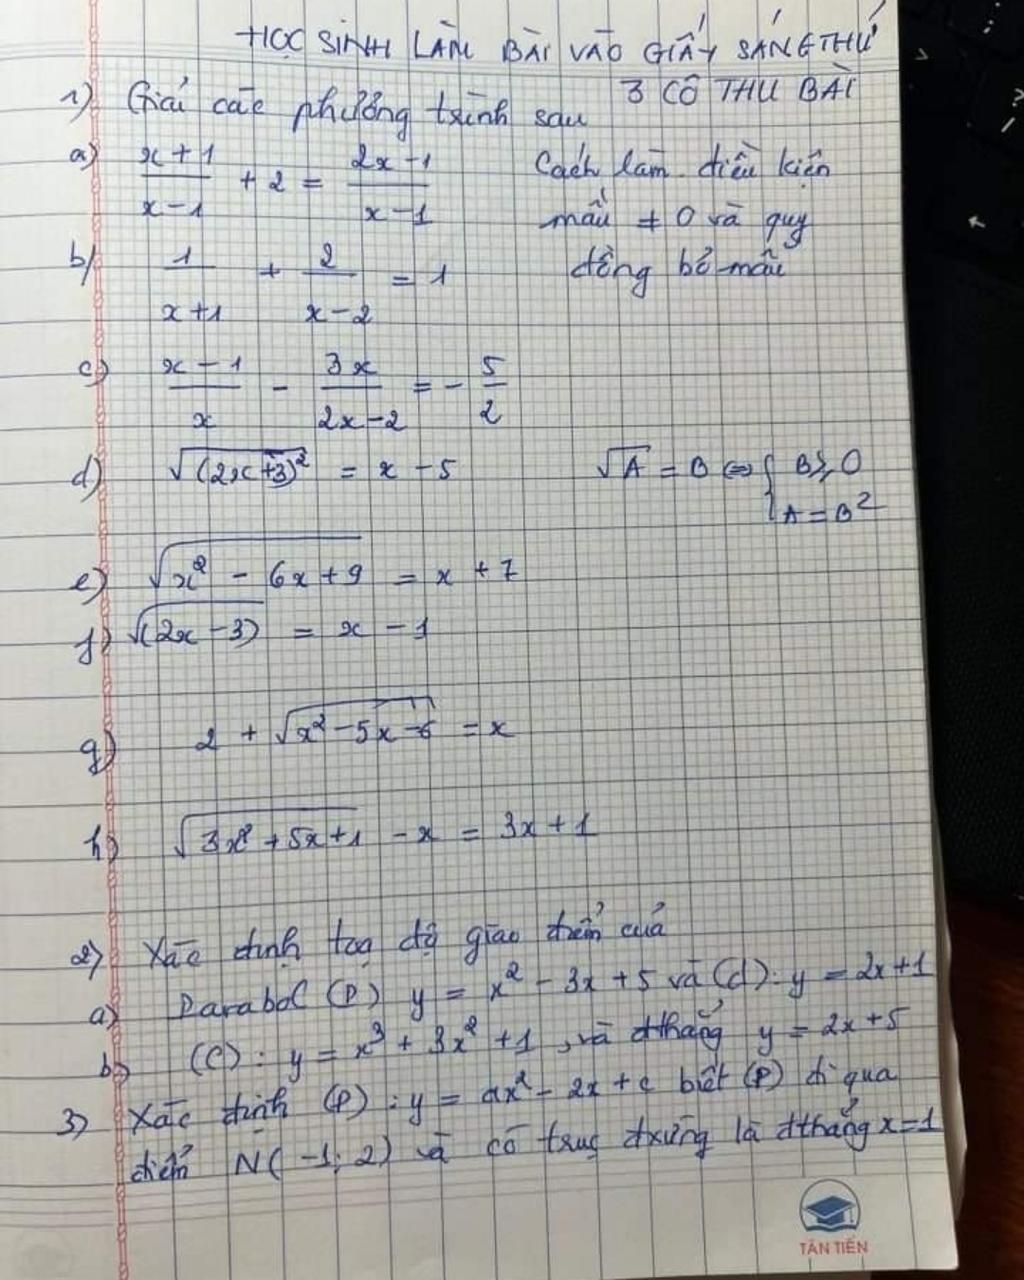 HỌC SINH LÀM BÀI VÀO GIẤY SÁNG THỨ
3 CÔ THU BÀI
1) Giải các phương trình sau
a) \frac{x+1}{x-1} + 2 = \frac{2x-1}{x-1} Cách làm điều kiện
mẫu ≠ 0 và quy
đồng bỏ mẫu
b) \frac{1}{x+1} + \frac{2}{x-2} = 1
c) \frac{x-1}{x} - \frac{3x}{2x-2} = -\frac{5}{2}
d) \sqrt{(2x+3)^2} = x - 5 \sqrt{A} = B ⇔ { B ≥ 0
A = B^2
e) \sqrt{x^2 - 6x + 9} = x + 7
f) \sqrt{(2x-3)} = x - 1
g) 2 + \sqrt{x^2 - 5x - 6} = x
h) \sqrt{3x^2 + 5x + 1} - x = 3x + 1
2) Xác định toạ độ giao điểm của
a) Parabol (P) y = x^2 - 3x + 5 và (d): y = 2x + 1
b) (C): y = x^3 + 3x^2 + 1, và đthẳng y = 2x + 5
3) Xác định (P): y = ax^2 - 2x + c biết (P) đi qua
điểm N(-1; 2) và có trục đxứng là đthẳng x = 1
TÂN TIẾN